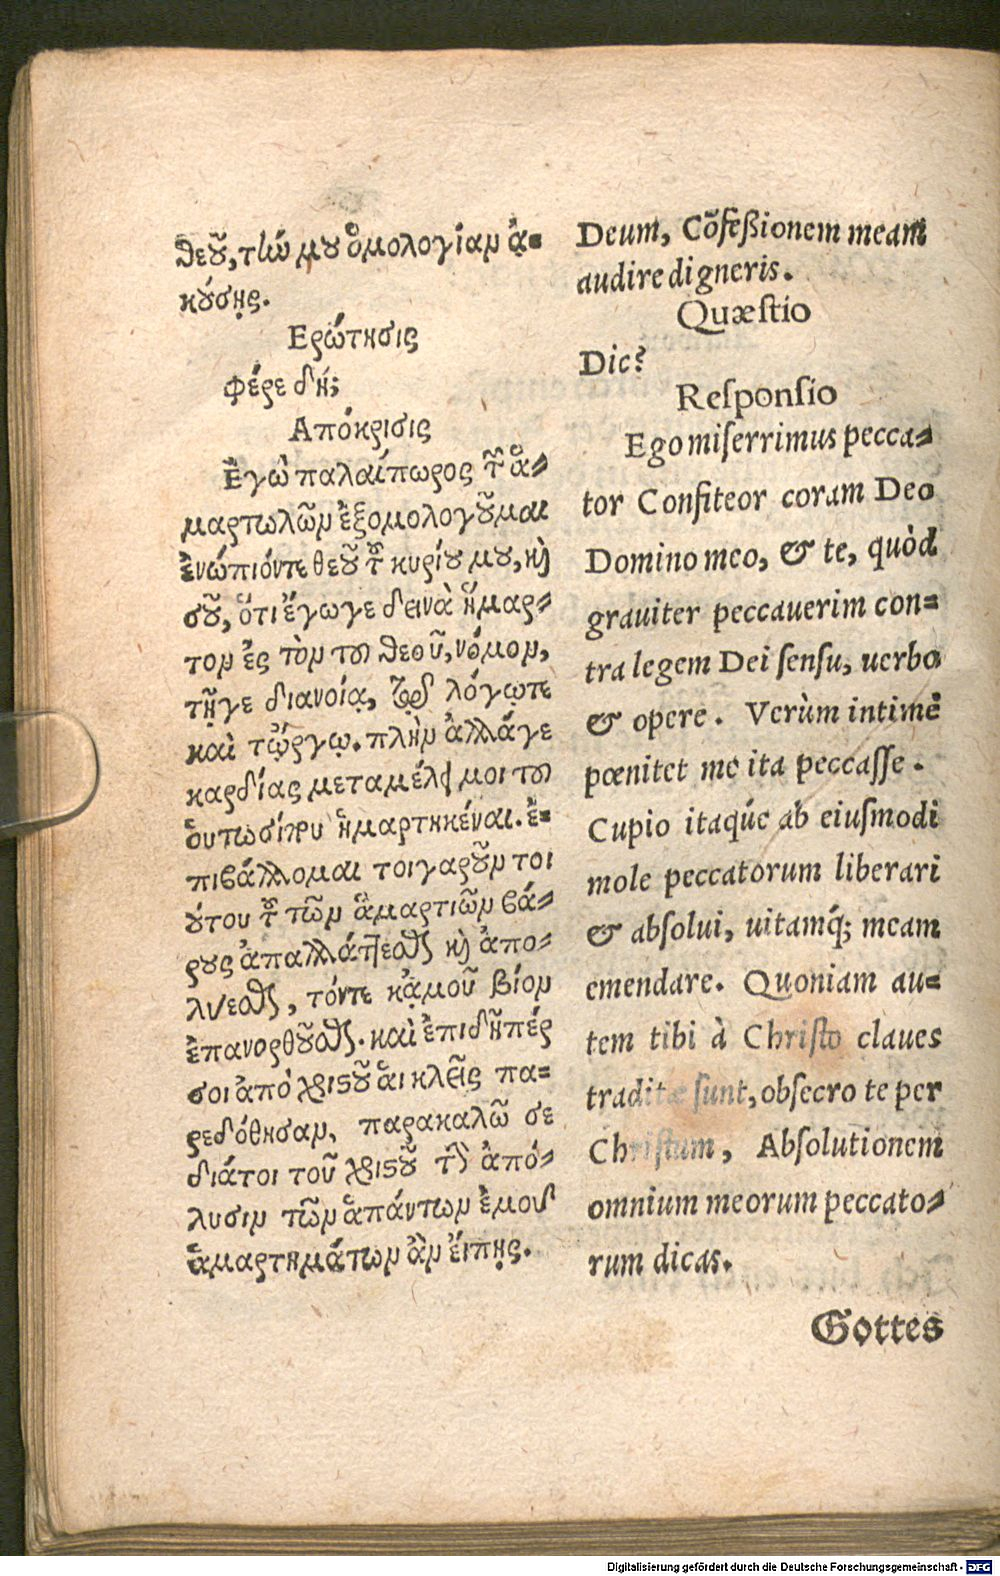 θεοῦ, τὴν μου ὁμολογίαν ἀ-
κούσῃς.
Ερώτησις
Φέρε δή;
Απόκρισις
Ἐγὼ παλαίπωρος τῶν ἁ-
μαρτωλῶν ἐξομολογοῦμαι
ἐνώπιόντε θεοῦ τοῦ κυρίου μου, καὶ
σοῦ, ὅτι ἔγωγε δεινὰ ἥμαρ-
τον ἐς τὸν τοῦ θεοῦ, νόμον,
τῇγε διανοίᾳ, λόγῳτε
καὶ τὦργῳ. πλὴν ἀλλάγε
καρδίας μεταμέλει μοι τοῦ
οὑτωσίπου ἡμαρτηκέναι. ἐ-
πιβάλλομαι τοιγαροῦν τοι
ούτου τοῦ τῶν ἁμαρτιῶν βά-
ρους ἀπαλλάττεσθαι καὶ ἀπο-
λύεσθαι, τόντε κᾀμοῦ βίον
ἐπανορθοῦσθαι. καὶ ἐπιδήπέρ
σοι ἀπὸ χριστοῦ ἁι κλεῖς πα-
ρεδόθησαν, παρακαλῶ σε
διάτοι τοῦ χριστοῦ τὴν ἀπό-
λυσιν τῶν ἁπάντων ἐμοῦ
ἁμαρτημάτων ἂν ἔιπῃς.
Deum, Cõfeßionem meam
audire digneris.
Quæstio
Dic?
Responsio
Ego miserrimus pecca-
tor Confiteor coram Deo
Domino meo, & te, quòd
grauiter peccauerim con-
tra legem Dei sensu, uerbo
& opere. Verùm intimè
pœnitet me ita peccasse.
Cupio itaq́ue ab eiusmodi
mole peccatorum liberari
& absolui, uitamq́; meam
emendare. Quoniam au-
tem tibi à Christo claues
traditæ sunt, obsecro te per
Christum, Absolutionem
omnium meorum peccato-
rum dicas.
Gottes
Digitalisierung gefördert durch die Deutsche Forschungsgemeinschaft - DFG